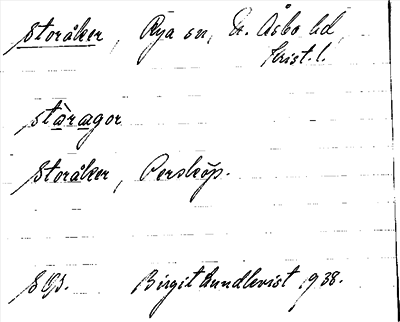 Storåker, Rya sn, N. Åsbo hd,
Krist. l.
stàragor
Storåker, Perstorp.
Birgit Lundkvist 1938.